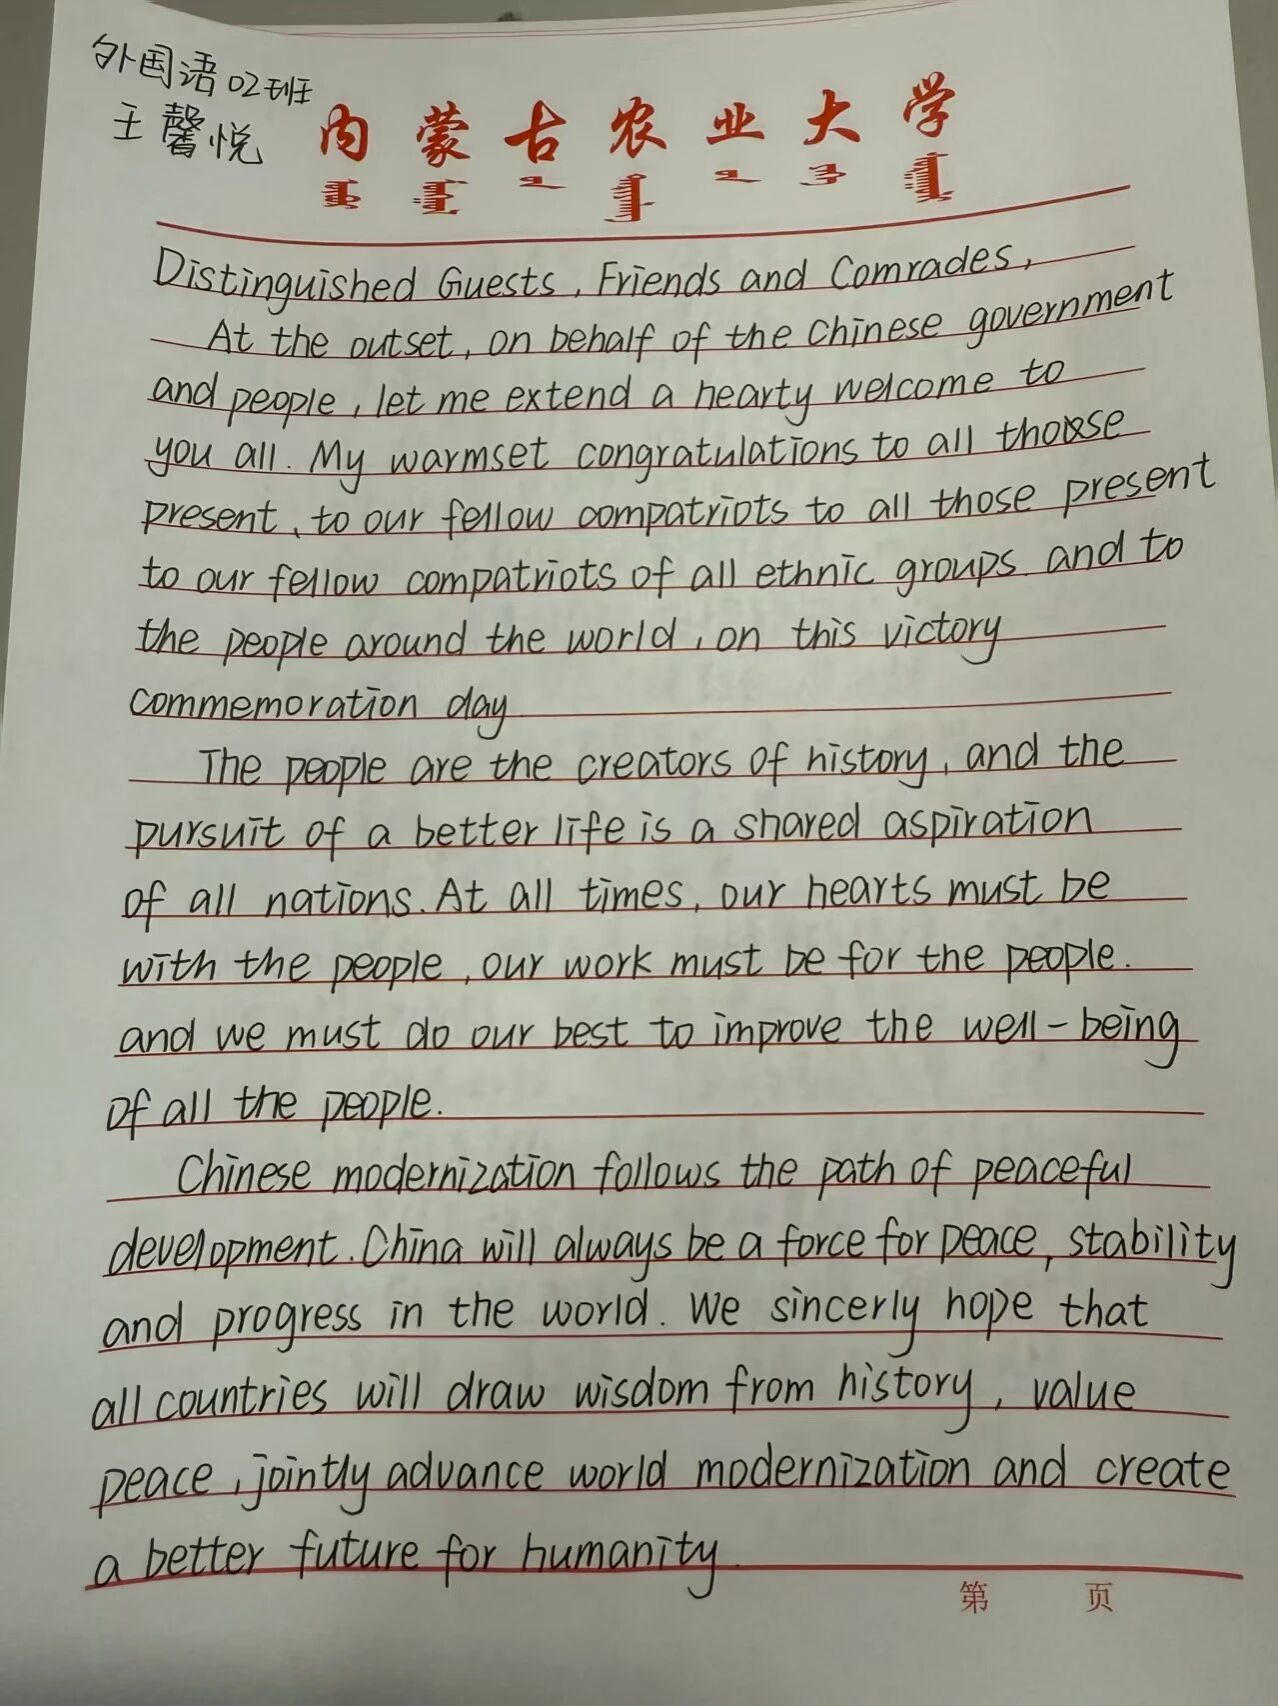 外国语02班
王馨悦
内蒙古农业大学
Distinguished Guests, Friends and Comrades,
At the outset, on behalf of the Chinese government
and people, let me extend a hearty welcome to
you all. My warmset congratulations to all those
present, to our fellow compatriots to all those present
to our fellow compatriots of all ethnic groups and to
the people around the world, on this victory
commemoration day
The people are the creators of history, and the
pursuit of a better life is a shared aspiration
of all nations. At all times, our hearts must be
with the people, our work must be for the people.
and we must do our best to improve the well-being
of all the people.
Chinese modernization follows the path of peaceful
development. China will always be a force for peace, stability
and progress in the world. We sincerly hope that
all countries will draw wisdom from history, value
peace, jointly advance world modernization and create
a better future for humanity.
第 页